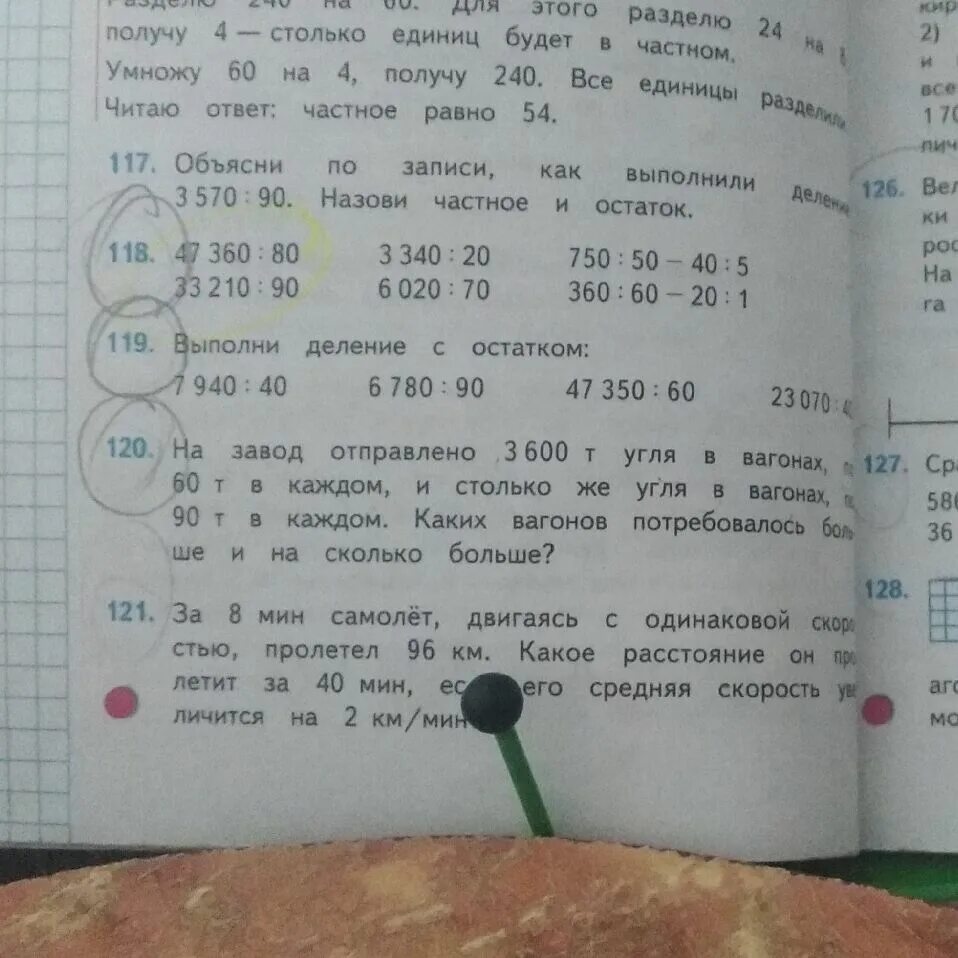 Разделю 240 на 60. Для этого разделю 24 на
получу 4 — столько единиц будет в частном.
Умножу 60 на 4, получу 240. Все единицы разделили
Читаю ответ: частное равно 54.
117. Объясни по записи, как выполнили
3 570 : 90. Назови частное и остаток.
118. 47 360 : 80 3 340 : 20 750 : 50 – 40 : 5
33 210 : 90 6 020 : 70 360 : 60 – 20 : 1
119. Выполни деление с остатком:
7 940 : 40 6 780 : 90 47 350 : 60 23 070 :
120. На завод отправлено 3 600 т угля в вагонах,
60 т в каждом, и столько же угля в вагонах,
90 т в каждом. Каких вагонов потребовалось боль
ше и на сколько больше?
121. За 8 мин самолёт, двигаясь с одинаковой скоро
стью, пролетел 96 км. Какое расстояние он про
летит за 40 мин, его средняя скорость уве
личится на 2 км/мин
2)
и
все
1 70
126. Вел
ки
рос
На
га
127. Сра
586
36
128.
аго
мо